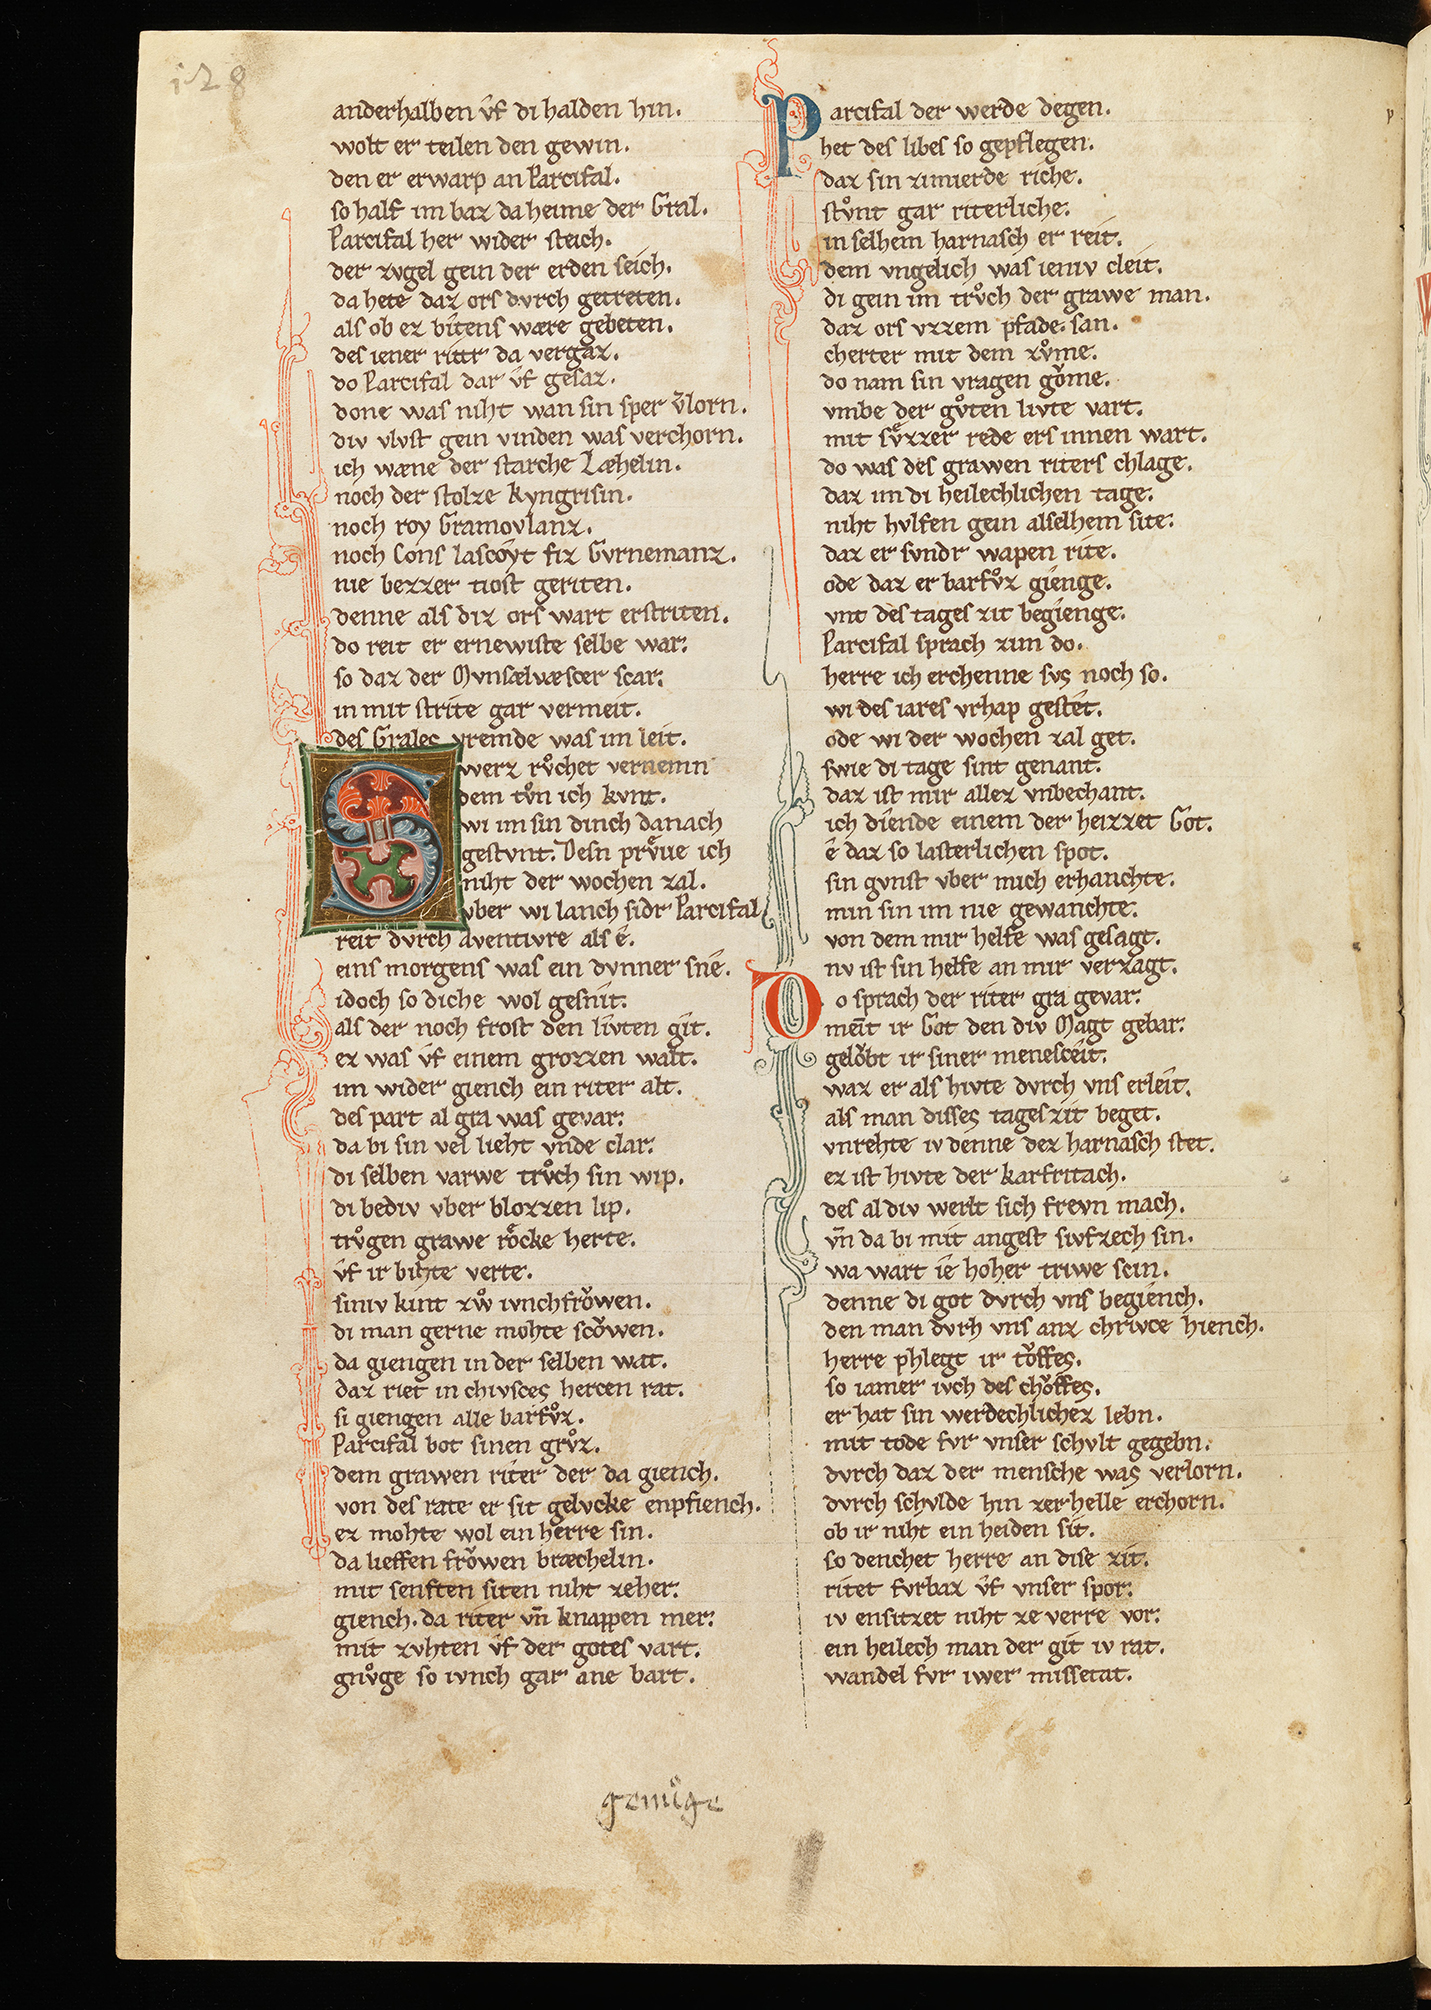 128
anderhalben v̂f di halden hin.
wolt er teilen den gewin.
den er erwarp an Parcifal.
so half im baz da heime der Gral.
Parcifal her wider steich.
der zvgel gein der erden seich.
da hete daz ors dvrch getreten.
als ob ez bitens wære gebeten.
des iener rittr da vergaz.
do Parcifal dar v̂f gesaz.
done was niht wan sin sper v̄lorn.
div vlvst gein vinden was verchorn.
ich wæne der starche Læhelin.
noch der stolze kyngrisin.
noch roy Gramovlanz.
noch Cons lascoyt fiz Gvrnemanz.
nie bezzer tiost geriten.
denne als diz ors wart erstriten.
do reit er ernewiste selbe war.
so daz der Mvnsælvæscer scar.
in mit strite gar vermeit.
des Grales vremde was im leit.
Swerz rvͦchet vernemn
dem tvͦn ich kvnt.
wi im sin dinch danach
gestvnt. Desn prvͤue ich
niht der wochen zal.
vber wi lanch sidr Parcifal
reit dvrch aventivre als ê.
eins morgens was ein dvnner sne.
idoch so diche wol gesnit.
als der noch frost den livten git.
ez was v̂f einem grozzen walt.
im wider giench ein riter alt.
des part al gra was gevar.
da bi sin vel lieht vnde clar.
di selben varwe trvͦch sin wip.
di bediv vber blozzen lip.
trvͦgen grawe rôͤcke herte.
v̂f ir bihte verte.
siniv kint zwͦ ivnchfrŏwen.
di man gerne mohte scŏwen.
da giengen in der selben wat.
daz riet in chivsces hercen rat.
si giengen alle barfvͦz.
Parcifal bot sinen grvͦz.
dem grawen riter der da giench.
von des rate er sit gelvcke enpfiench.
ez mohte wol ein herre sin.
da lieffen frŏwen bræchelin.
mit senften siten niht zeher.
giench. da riter vn̄ knappen mer.
mit zvhten v̂f der gotes vart.
gnvͦge so ivnch gar ane bart.
Parcifal der werde degen.
het des libes so gepflegen.
daz sin zimierde riche.
stvͦnt gar riterliche.
in selhem harnasch er reit.
dem vngelich was ieniv cleit.
di gein im trvͦch der grawe man.
daz ors vzzem pfade. san.
cherter mit dem zvͦme.
do nam sin vragen gŏme.
vmbe der gvͦten livte vart.
mit svͤzzer rede ers innen wart.
do was des grawen riters chlage.
daz im di heilechlichen tage.
niht hvlfen gein alselhem site.
daz er svndr wapen rite.
ode daz er barfvͦz gienge.
vnt des tages zit begienge.
Parcifal sprach zim do.
herre ich erchenne svs noch so.
wi des iares vrhap gestet.
ode wi der wochen zal get.
swie di tage sint genant.
daz ist mir allez vnbechant.
ich diende einem der heizzet Got.
ê daz so lasterlichen spot.
sin gvnst vber mich erhanchte.
min sin im nie gewanchte.
von dem mir helfe was gesagt.
nv ist sin helfe an mir verzagt.
Do sprach der riter gra gevar.
meīt ir Got den div Magt gebar.
gelŏbt ir siner mensceit.
waz er als hivte dvrch vns erleit.
als man disses tages zit beget.
vnrehte iv denne dez harnasch stet.
ez ist hivte der karfritach.
des al div werlt sich frevn mach.
vn̄ da bi mit angest sivfzech sin.
wa wart ie hoher triwe scin.
denne di got dvrch vns begiench.
den man dvrh vns anz chrivce hiench.
herre phlegt ir tŏffes.
so iamer ivch des chŏffes.
er hat sin werdechlichez lebn.
mit tode fvr vnser schvlt gegebn.
dvrch daz der mensche was verlorn.
dvrch schvlde hin zer helle erchorn.
ob ir niht ein heiden sit.
so denchet herre an dise zit.
ritet fvrbaz v̂f vnser spor.
iv ensitzet niht ze verre vor.
ein heilech man der git iv rat.
wandel fvr iwer missetat.
genvͦge